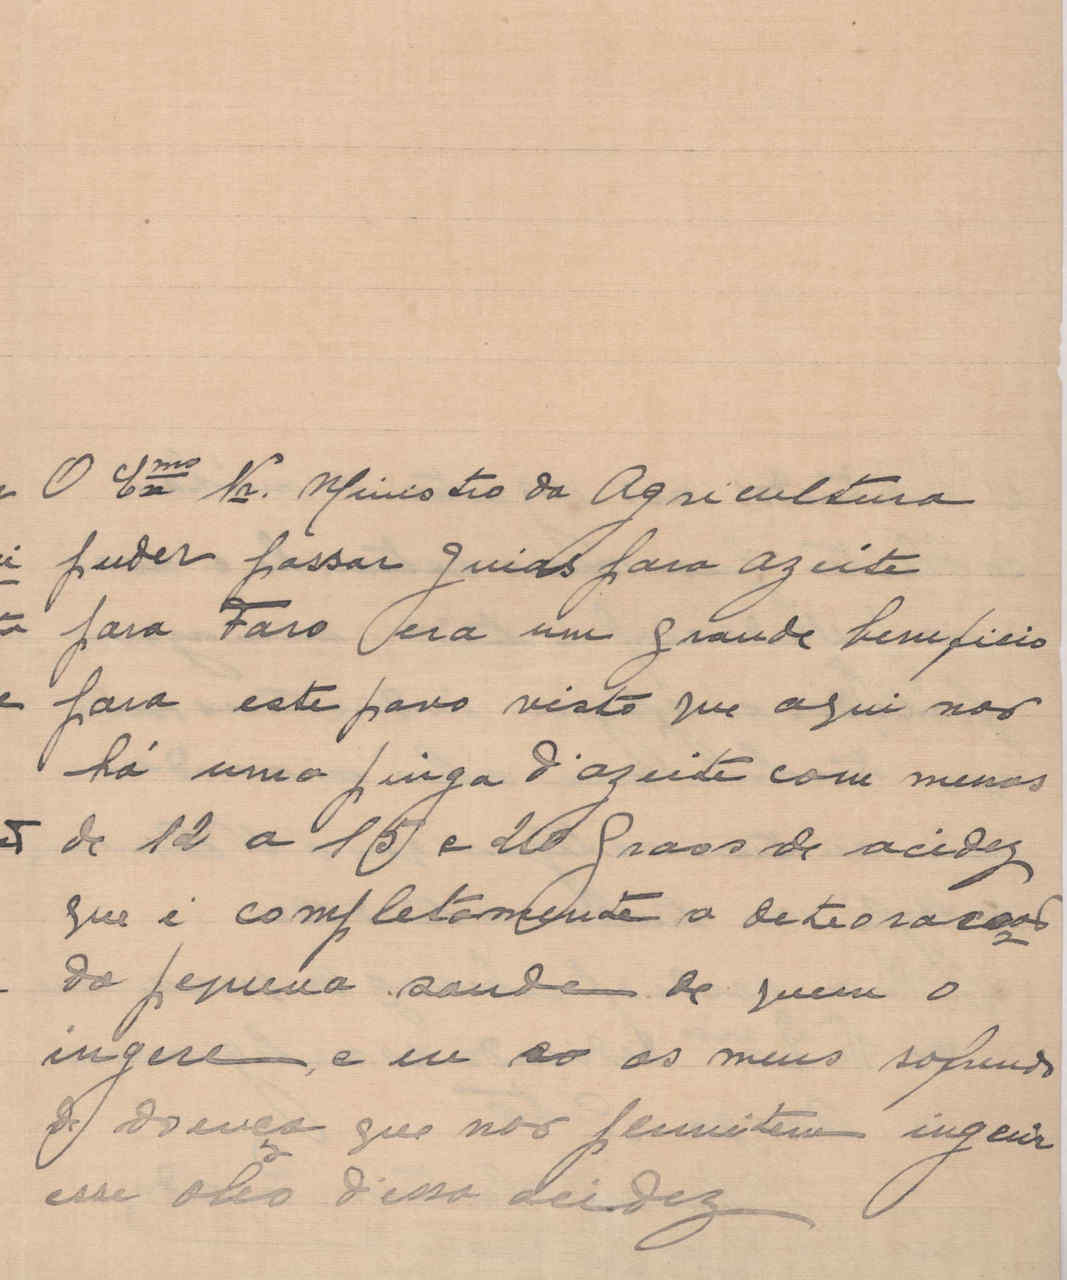 O Exmo Sr. Ministro da Agricultura
puder passar guias para azeite
para Faro era um grande beneficio
para este povo visto que aqui não
há uma pinga d'azeite com menos
de 12 a 15 e 20 graos de acidez
que é completamente a deteoração
da pequena saude de quem o
ingere, e eu os meus sofrendo
de doença que não permitem ingerir
esse oleo d'essa acidez